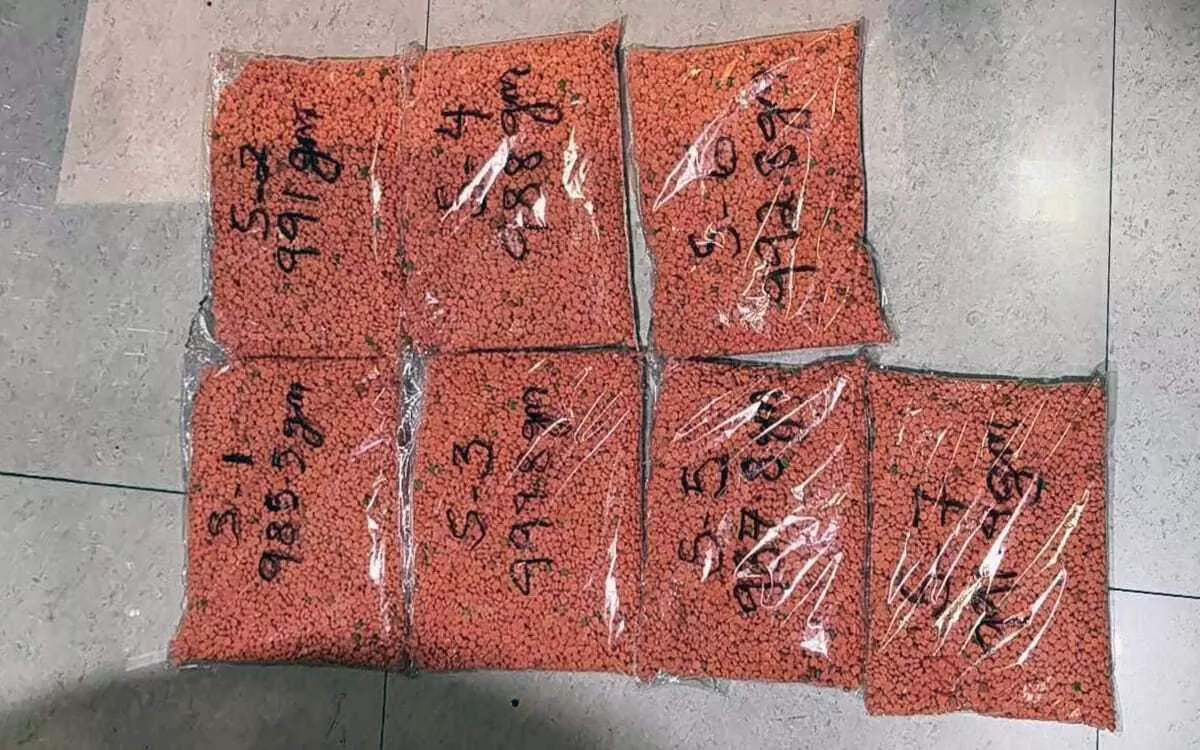 S-2
991gm
S-4
988gm
S-6
992.8gm
S-1
985.5gm
S-3
S-5
987.8gm
S-7